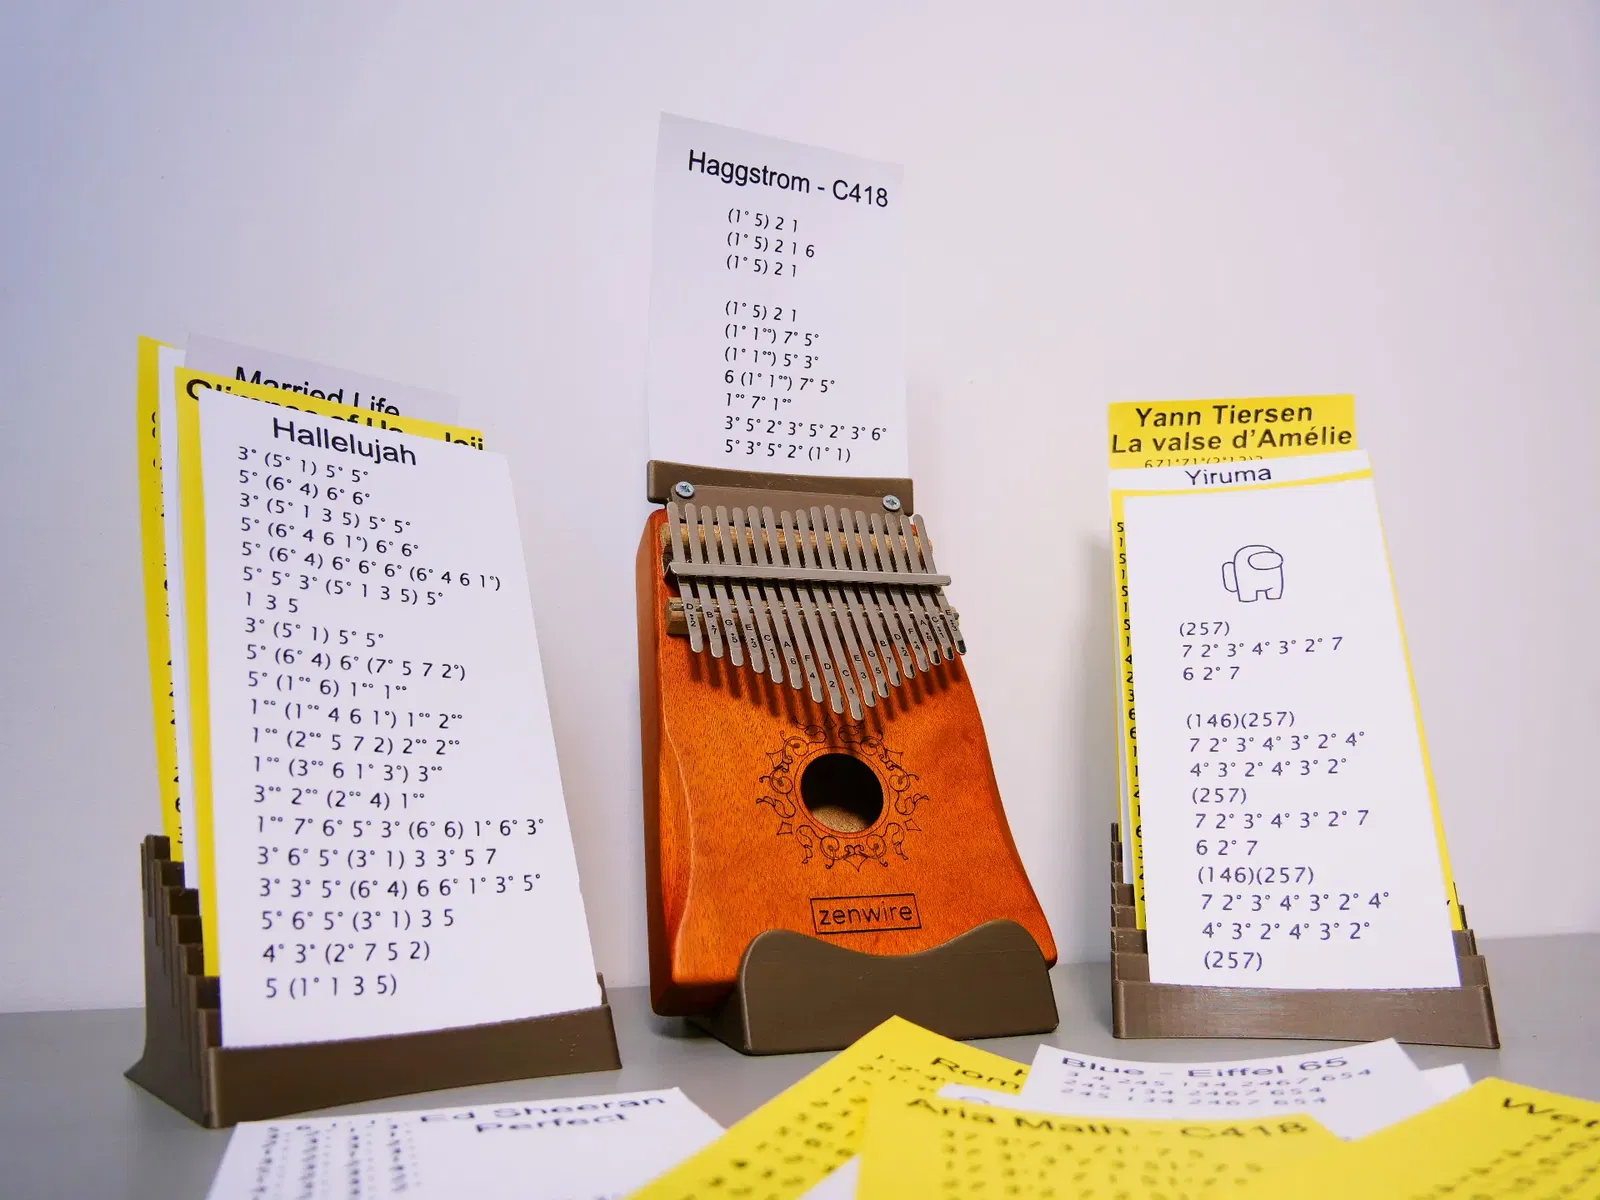 Haggstrom - C418
(1° 5) 2 1
(1° 5) 2 1 6
(1° 5) 2 1
(1° 5) 2 1
(1° 1°°) 7° 5°
(1° 1°°) 5° 3°
6 (1° 1°°) 7° 5°
1°° 7° 1°°
3° 5° 2° 3° 5° 2° 3° 6°
5° 3° 5° 2° (1° 1)
Married Life
Hallelujah
3° (5° 1) 5° 5°
5° (6° 4) 6° 6°
3° (5° 1 3 5) 5° 5°
5° (6° 4 6 1°) 6° 6°
5° (6° 4) 6° 6° 6° (6° 4 6 1°)
5° 5° 3° (5° 1 3 5) 5°
1 3 5
3° (5° 1) 5° 5°
5° (6° 4) 6° (7° 5 7 2°)
5° (1°° 6) 1°° 1°°
1°° (1°° 4 6 1°) 1°° 2°°
1°° (2°° 5 7 2) 2°° 2°°
1°° (3°° 6 1° 3°) 3°°
3°° 2°° (2°° 4) 1°°
1°° 7° 6° 5° 3° (6° 6) 1° 6° 3°
3° 6° 5° (3° 1) 3 3° 5 7
3° 3° 5° (6° 4) 6 6° 1° 3° 5°
5° 6° 5° (3° 1) 3 5
4° 3° (2° 7 5 2)
5 (1° 1 3 5)
zenwire
Yann Tiersen
La valse d'Amélie
Yiruma
(257)
7 2° 3° 4° 3° 2° 7
6 2° 7
(146)(257)
7 2° 3° 4° 3° 2° 4°
4° 3° 2° 4° 3° 2°
(257)
7 2° 3° 4° 3° 2° 7
6 2° 7
(146)(257)
7 2° 3° 4° 3° 2° 4°
4° 3° 2° 4° 3° 2°
(257)
Ed Sheeran
Perfect
Blue - Eiffel 65
Aria Math - C418